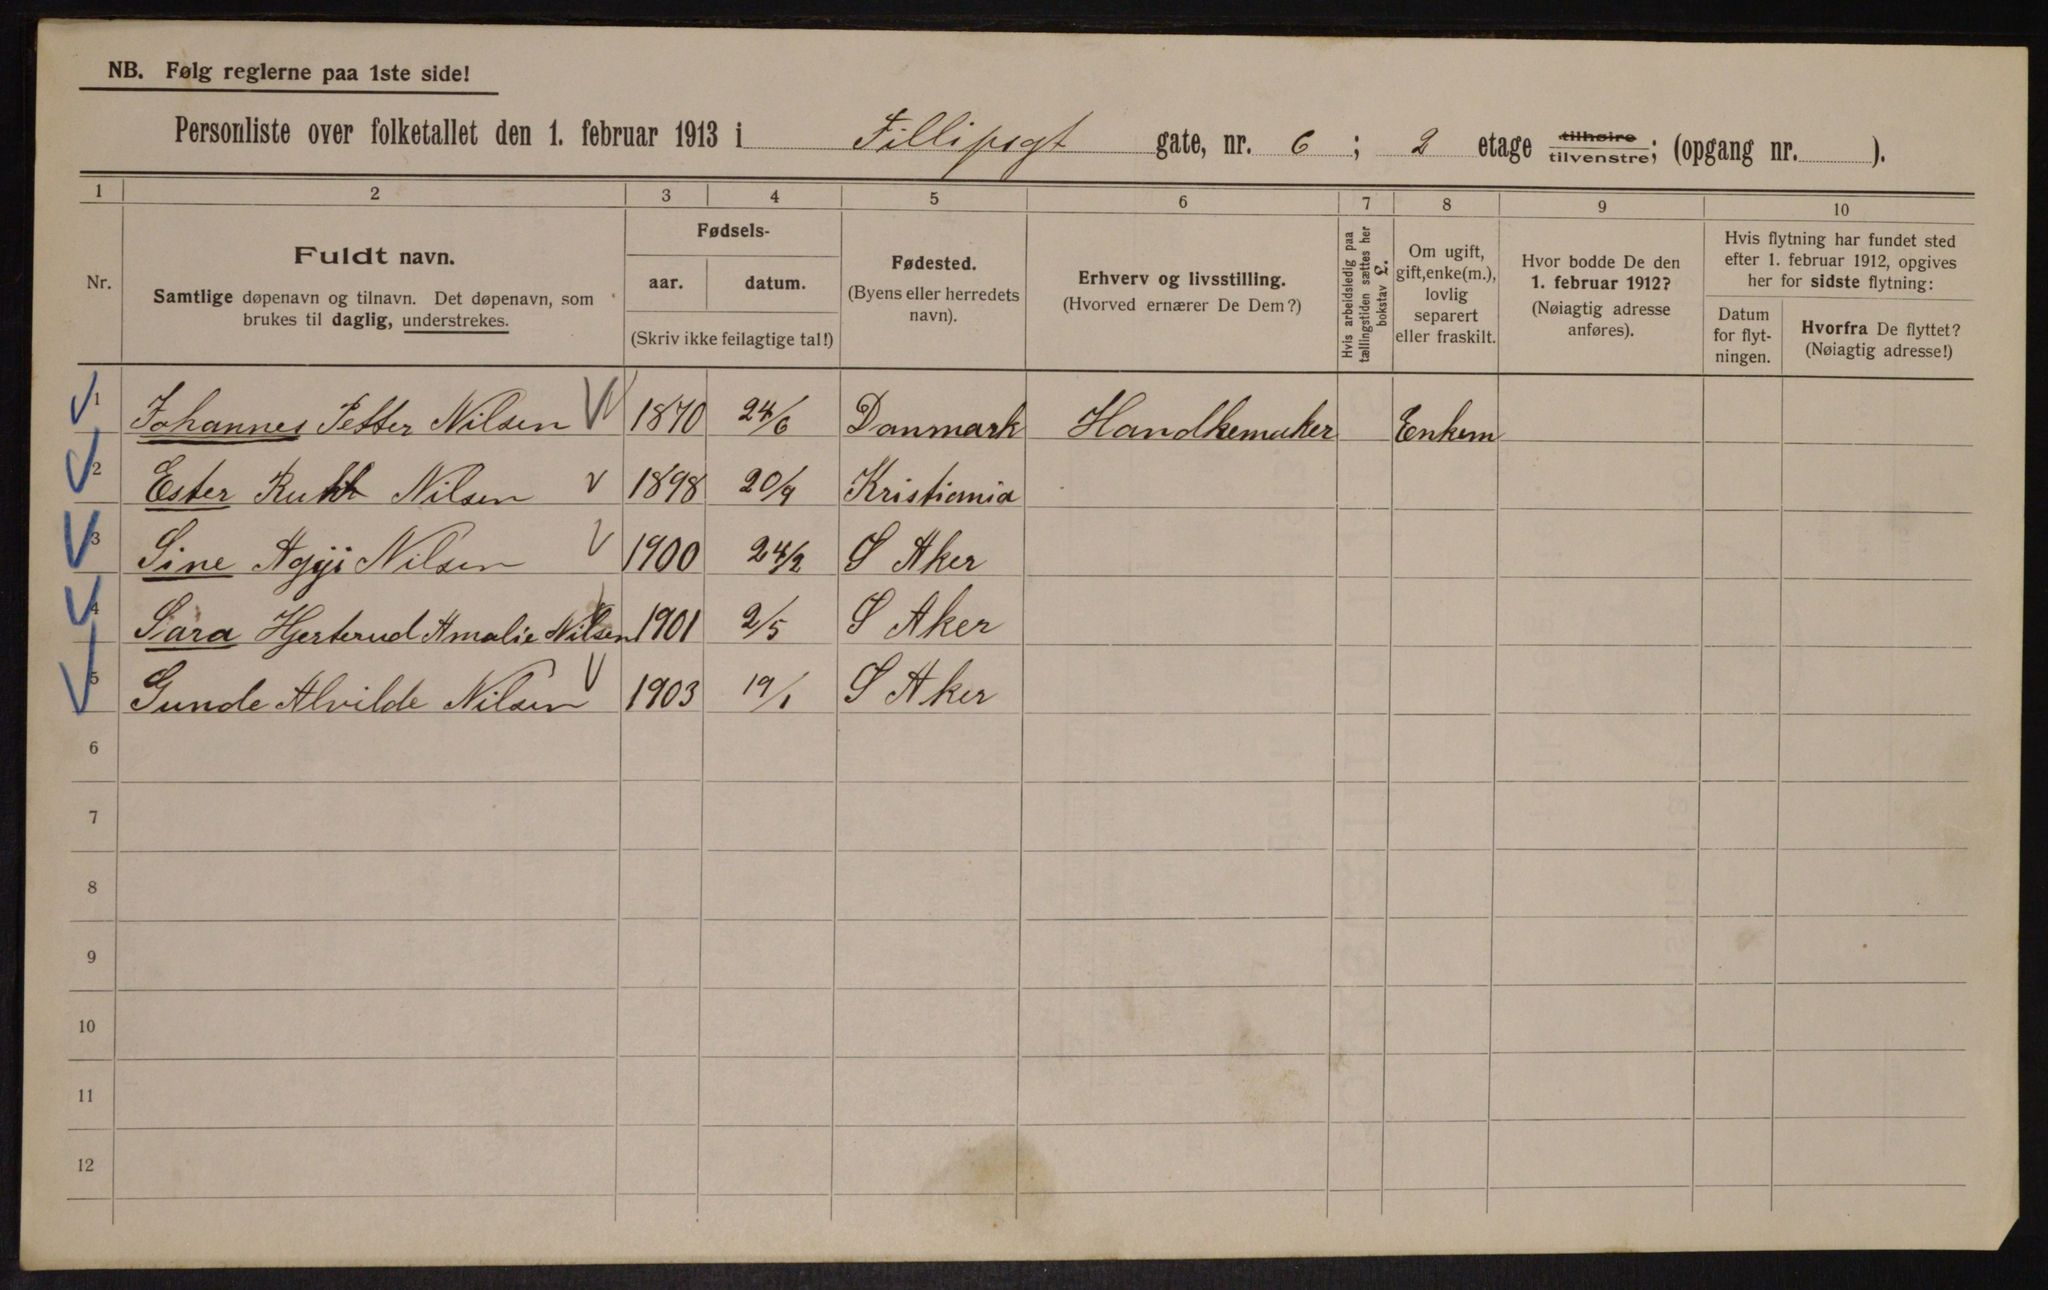 NB. Følg reglerne paa 1ste side!
Personliste over folketallet den 1. februar 1913 i Fillipsgt gate, nr. 6 ; 2 etage tilhøire tilvenstre; (opgang nr. ).
1 2 3 4 5 6 7 8 9 10
Nr.
Fuldt navn.
Samtlige døpenavn og tilnavn. Det døpenavn, som
brukes til daglig, understrekes.
Fødsels-
aar. datum.
(Skriv ikke feilagtige tal!)
Fødested.
(Byens eller herredets
navn).
Erhverv og livsstilling.
(Hvorved ernærer De Dem?)
Hvis arbeidsledig paa
tællingstiden sættes her
bokstav L.
Om ugift,
gift, enke(m.),
lovlig
separert
eller fraskilt.
Hvor bodde De den
1. februar 1912?
(Nøiagtig adresse
anføres).
Hvis flytning har fundet sted
efter 1. februar 1912, opgives
her for sidste flytning:
Datum
for flyt-
ningen.
Hvorfra De flyttet?
(Nøiagtig adresse!)
1 Johannes Petter Nilsen 1870 24/6 Danmark Handkemaker Enkem
2 Ester Ruth Nilsen 1898 20/9 Kristiania
3 Sine Nilsen 1900 24/2 S Aker
4 Sara Hjerterud Amalie Nilsen 1901 2/5 S Aker
5 Gunde Alvilde Nilsen 1903 19/1 S Aker
6
7
8
9
10
11
12